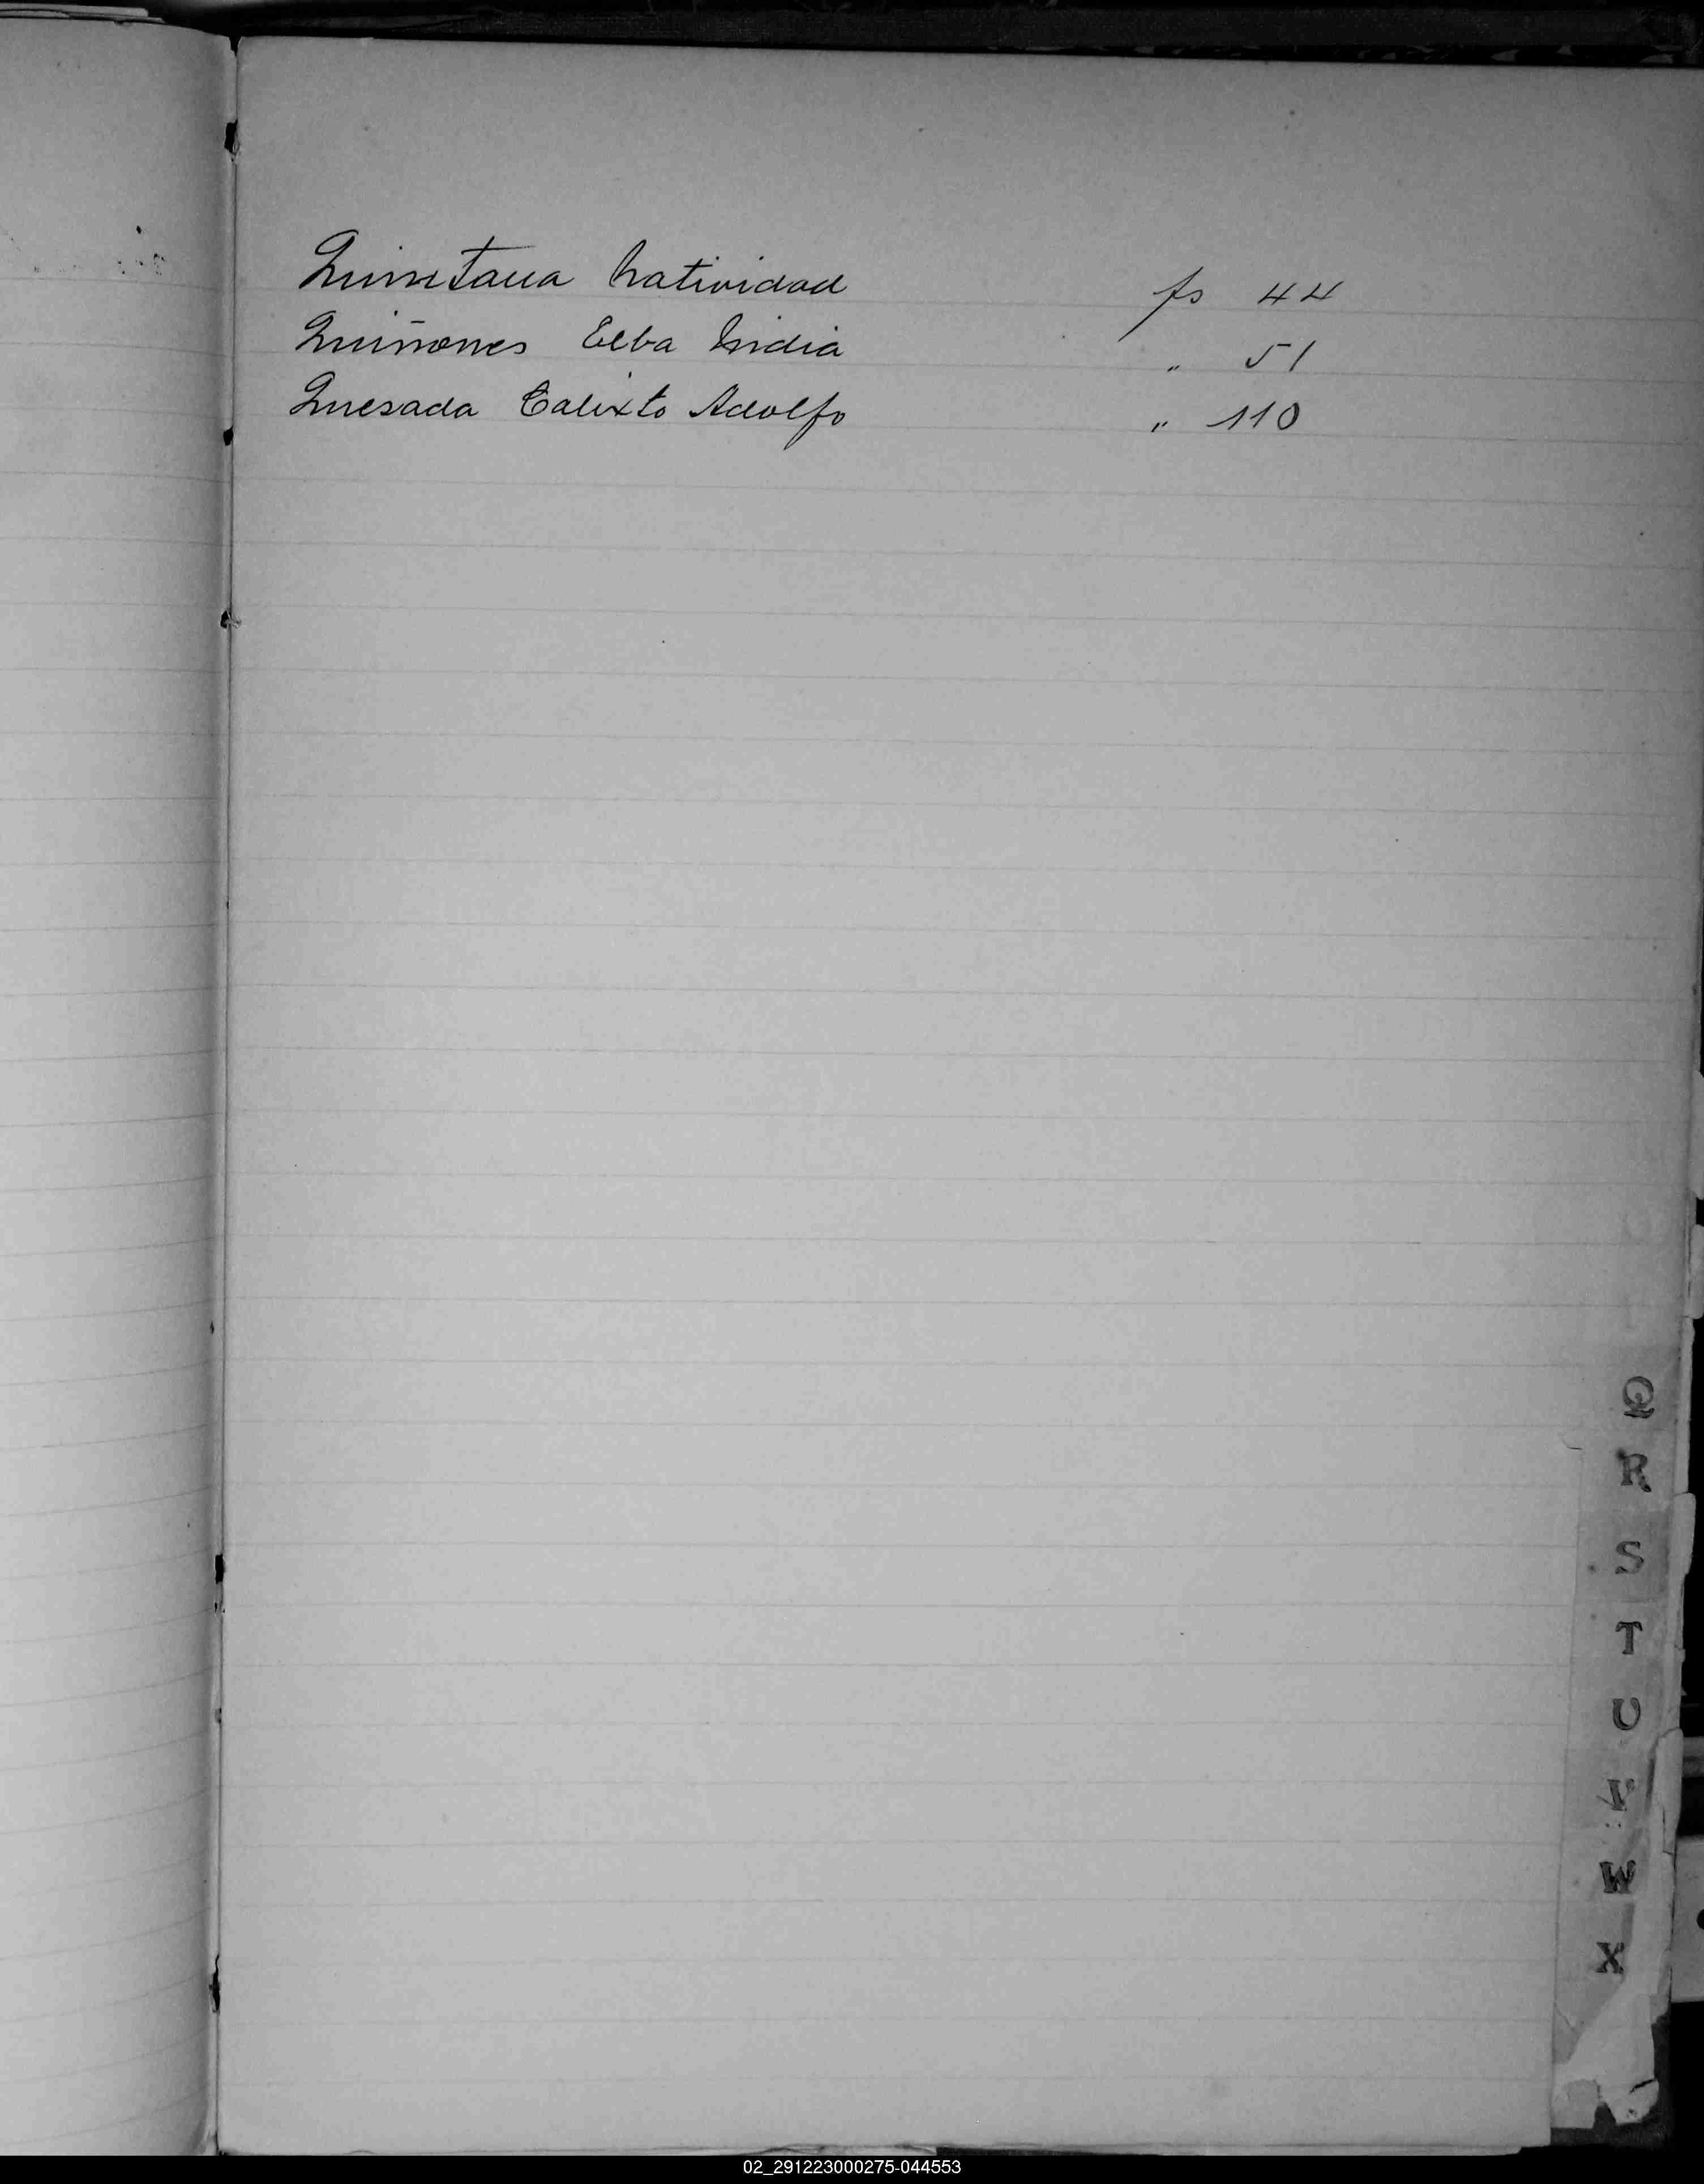 Quintana Natividad fs 44
Quiñones Elba Nidia " 51
Quesada Calixto Adolfo " 110
Q
R
S
T
U
V
W
X
02_291223000275-044553